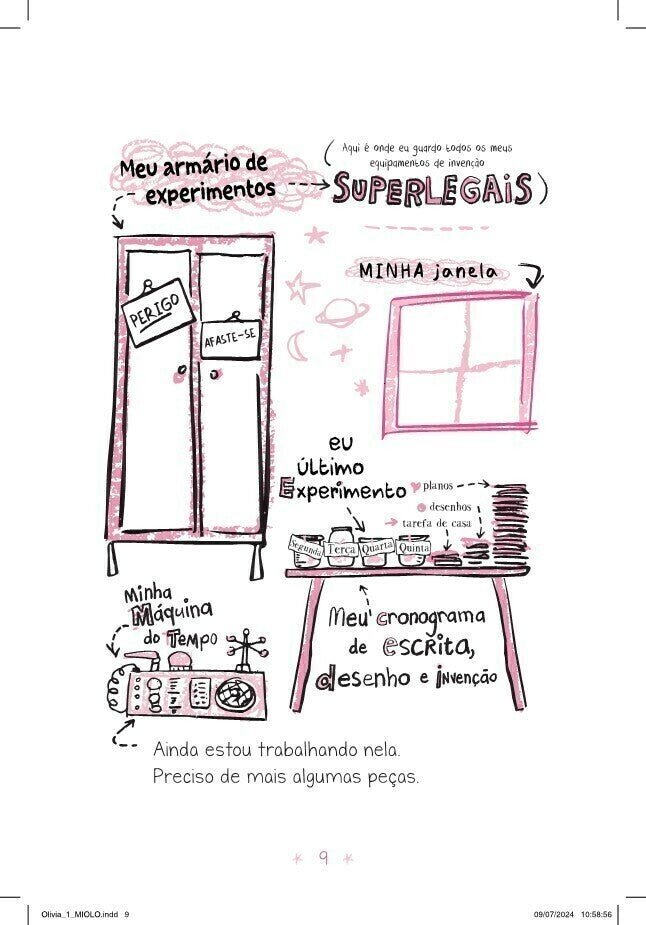 Meu armário de
experimentos
(Aqui é onde eu guardo todos os meus
equipamentos de invenção
SUPERLEGAIS)
MINHA janela
PERIGO
AFASTE-SE
eu
último
Experimento
planos
desenhos
tarefa de casa
Segunda Terça Quarta Quinta
Minha
Máquina
do Tempo
Meu cronograma
de escrita,
desenho e invenção
Ainda estou trabalhando nela.
Preciso de mais algumas peças.
9
Olivia_1_MIOLO.indd 9
09/07/2024 10:58:56